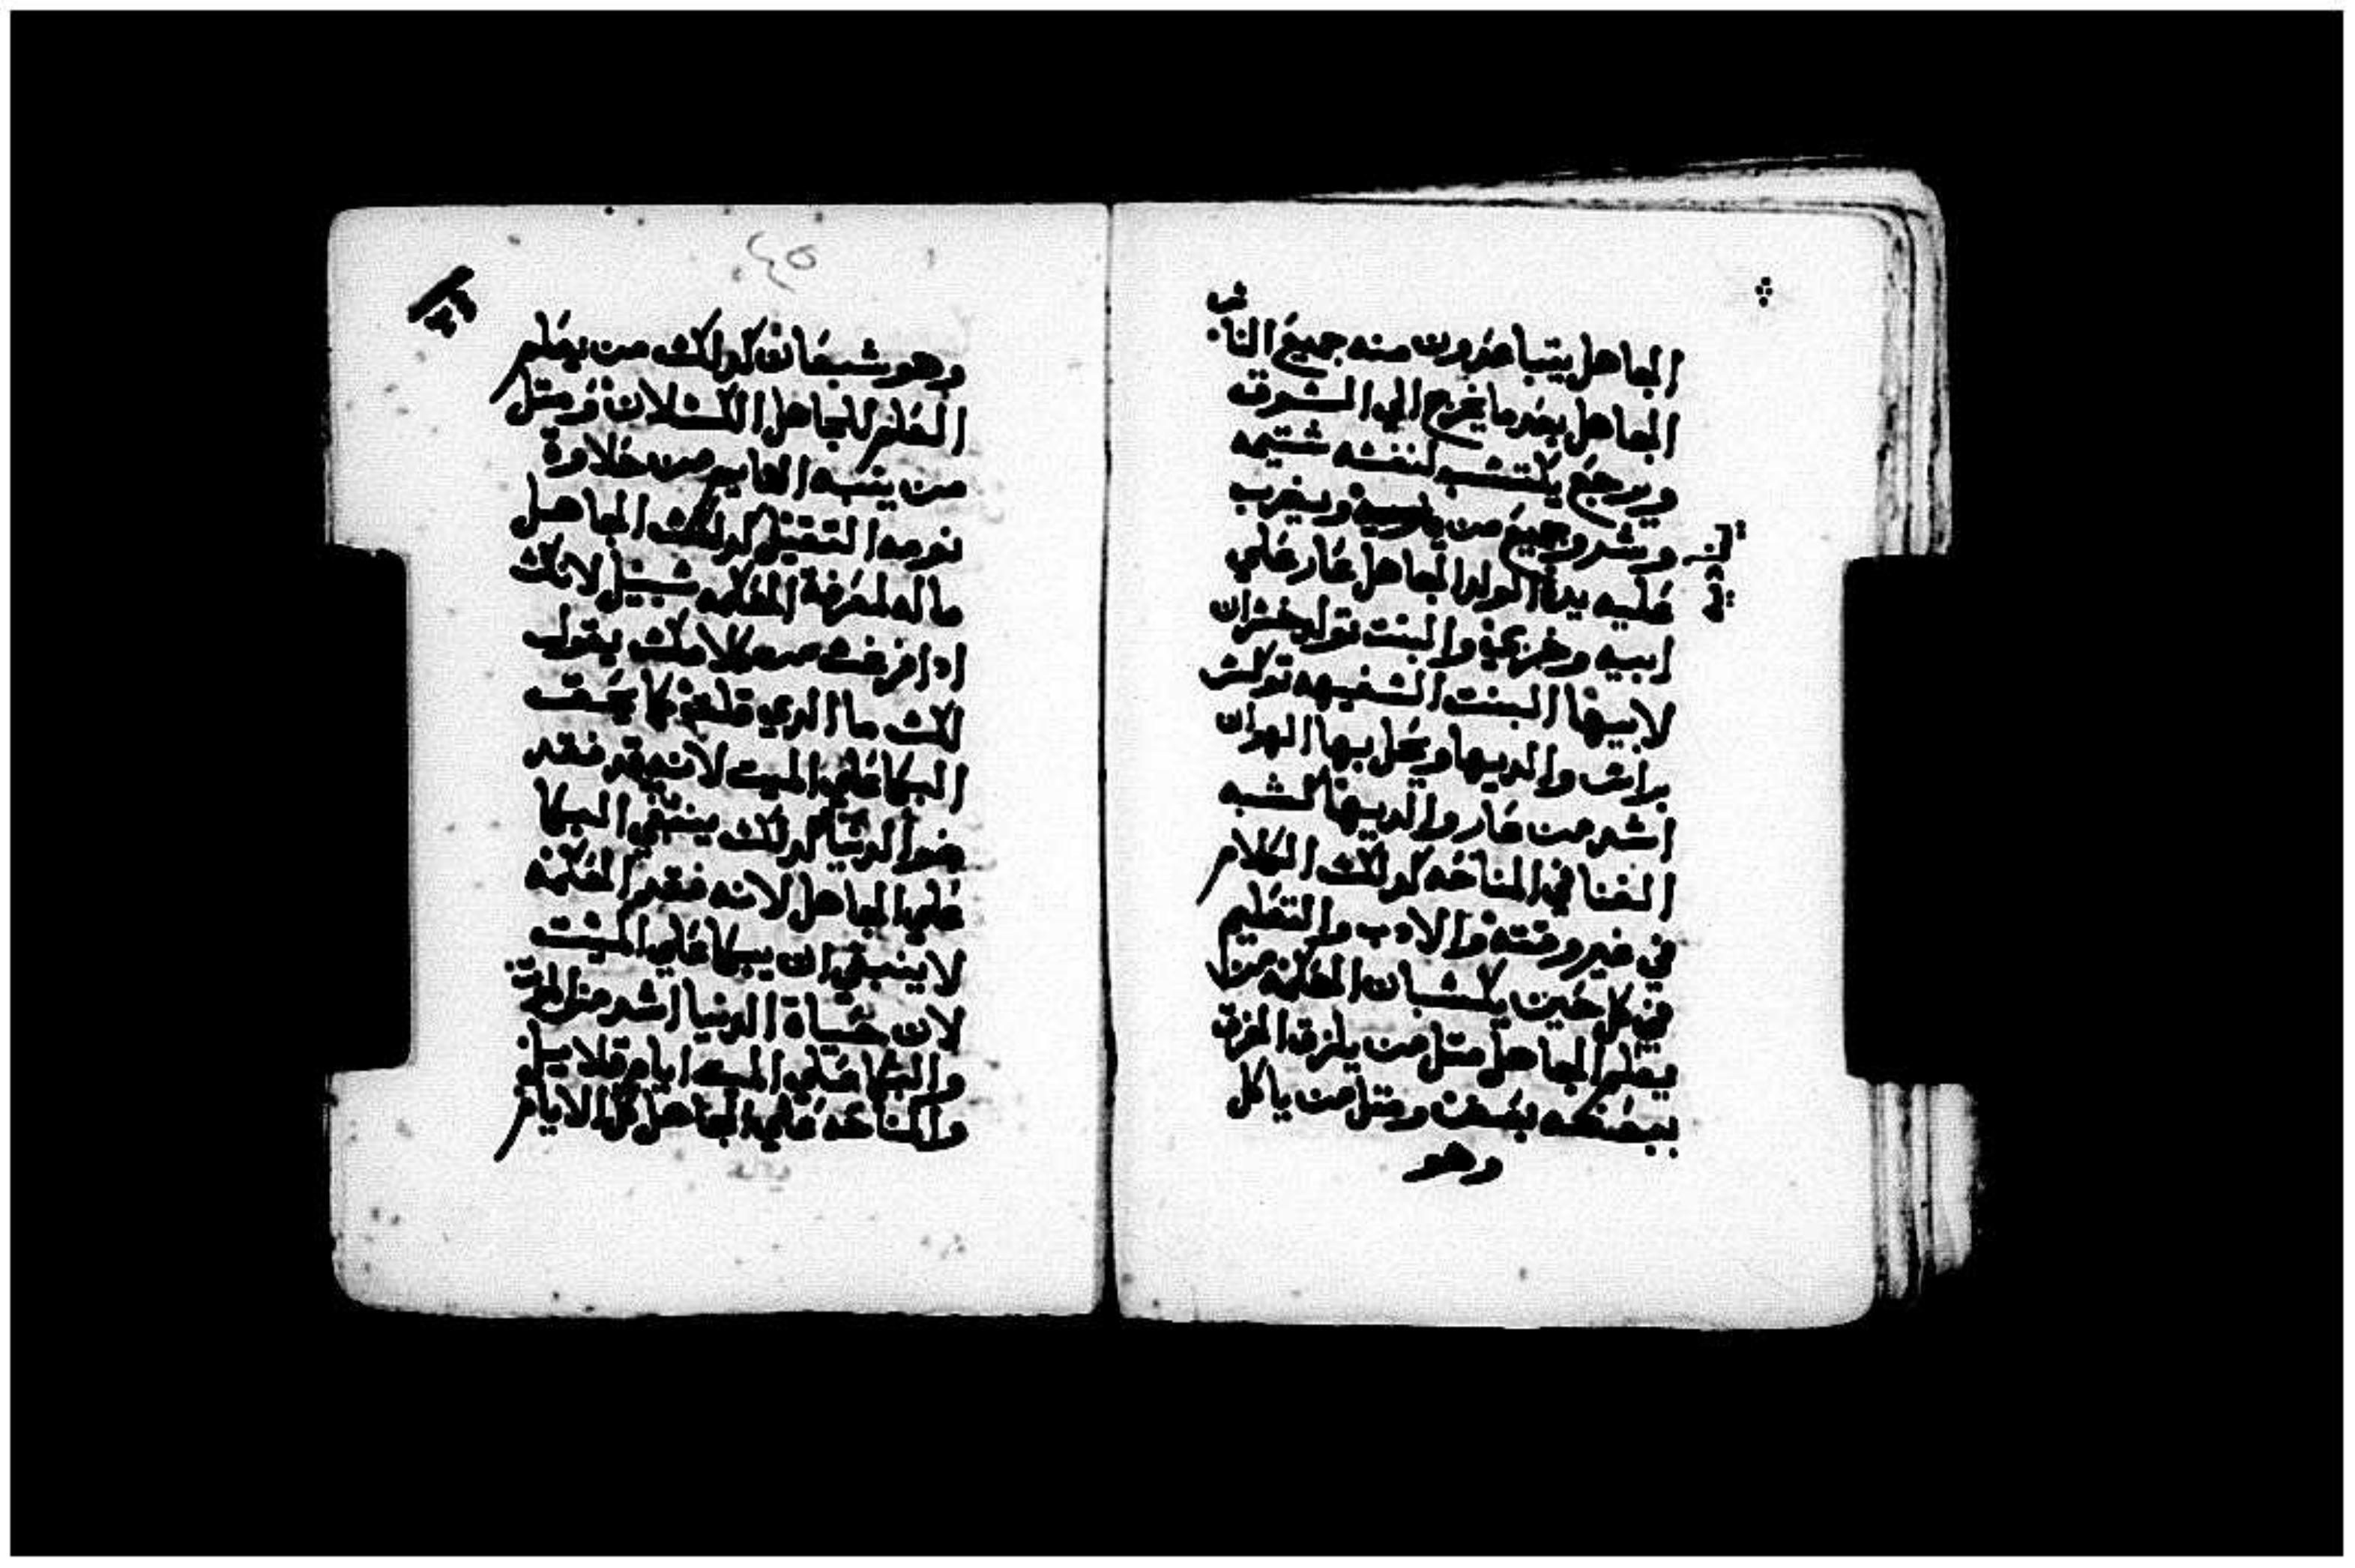 الجاهل يتباعدون منه جميع الناس
الجاهل بعد ما يخرج الي السوق
ويرجع يكتسب لنفسه شتيمه
وشر وجميع من يضرب
عليه يده الولد الجاهل عار علي
ابيه وخزي والبنت تولد خسران
لابيها البنت السفيهه توكس
براس والديها ويحل بها الهوان
اشد من عار والديها كشبه
الغنا في المناحه كدلك الكلام
في غير وقته والادب والتعليم
في كل حين يكسبان الحكمه من
يعلم الجاهل متل من يلزق الخزق
ببعضه بعض ومتل من ياكل
وهو
٤٥
وهو شبعان كدلك من يعلم
العلم للجاهل الكسلان ومتل
من ينبه النايم من حلاوة
نومه التقيل كدلك الجاهل
ماله لمعرفة الحكمه سبيل لانك
ادا فرغت من كلامك يقول
لك ما الدي قلته كما يحق
البكا علي الميت لانه قد فقد
ضوا الدنيا كدلك ينبغي البكا
علي الجاهل لانه فقد الحكمه
لا ينبغي ان يبكا علي الميت
لان حياة الدنيا اشد من الموت
والبكا علي الميت ايام قلايل
والمناحه علي الجاهل كل الايام